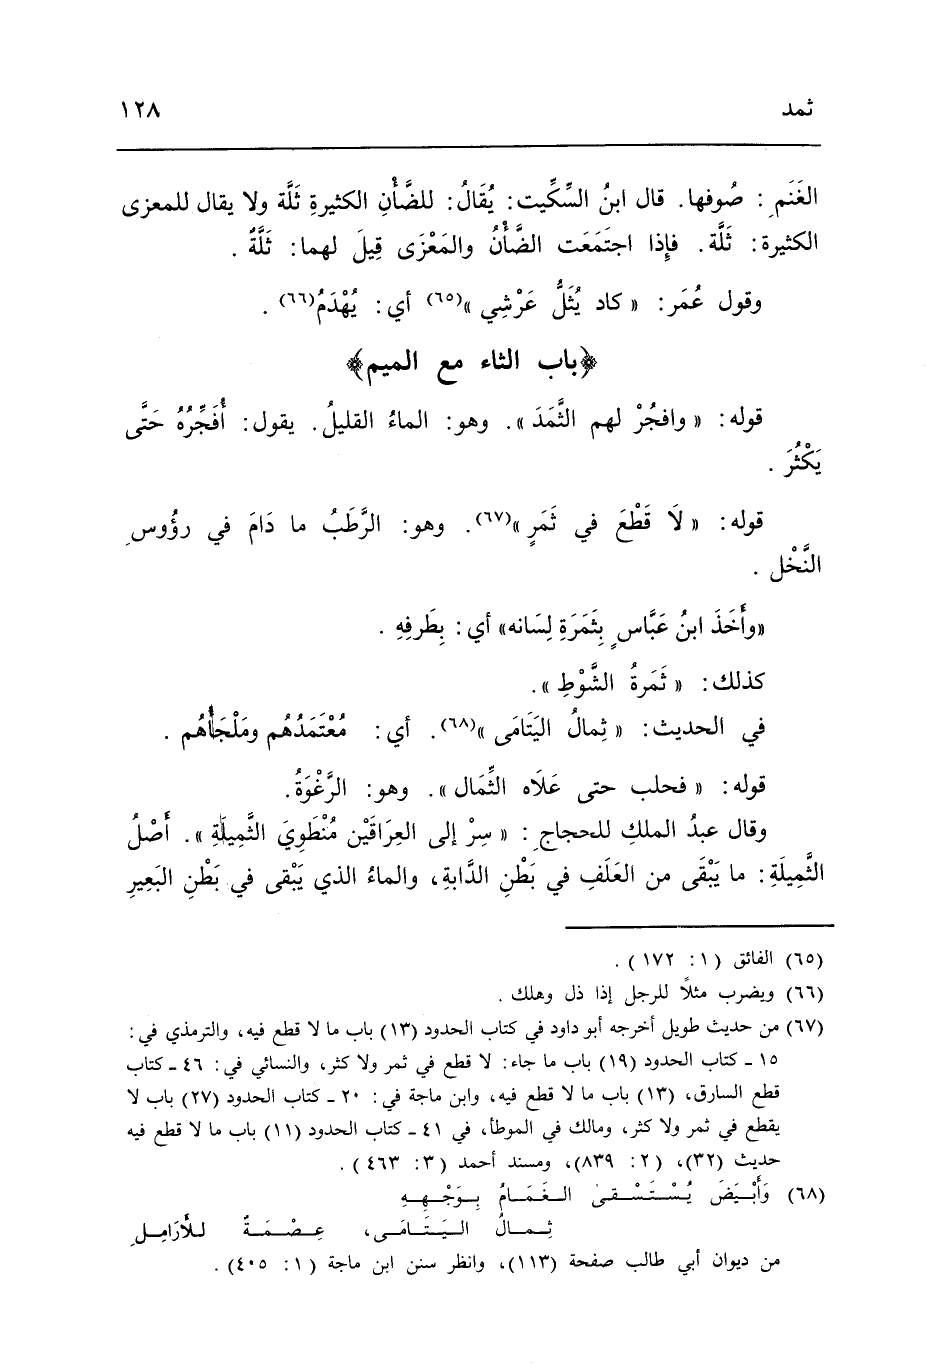 ثمد ١٢٨
الغَنَمِ : صُوفها. قال ابنُ السِّكِّيت: يُقَالُ: للضَّأْنِ الكثيرةِ ثَلَّة ولا يقال للمعزى
الكثيرة: ثَلَّة. فإِذا اجتَمَعَت الضَّأْنُ والمَعْزَى قِيلَ لهما: ثَلَّةٌ .
وقول عُمَر: « كاد يُثَلُّ عَرْشِي »(٦٥) أي: يُهْدَمُ(٦٦) .
﴿باب الثاء مع الميم﴾
قوله: « وافجُرْ لهم الثَّمَدَ ». وهو: الماءُ القليلُ. يقول: أُفَجِّرُهُ حَتَّى
يَكْثُرَ .
قوله: « لَا قَطْعَ في ثَمَرٍ »(٦٧). وهو: الرَّطَبُ ما دَامَ في رؤُوسِ
النَّخْل .
«وأَخَذَ ابنُ عَبَّاسٍ بِثَمَرَةِ لِسَانه» أي: بِطَرفِهِ .
كذلك: « ثَمَرةُ الشَّوْطِ ».
في الحديث: « ثِمالُ اليَتَامَى »(٦٨). أي: مُعْتَمَدُهُم ومَلْجَأُهُم .
قوله: « فحلب حتى عَلَاه الثِّمَال ». وهو: الرَّغْوَةُ.
وقال عبدُ الملكِ للحجاجِ : « سِرْ إلى العِرَاقَيْن مُنْطَوِيَ الثَّمِيلَةِ ». أَصْلُ
الثَّمِيلَةِ: ما يَبْقَى من العَلَفِ في بَطْنِ الدَّابةِ، والماءُ الذي يَبْقى في بَطْنِ البَعِيرِ
(٦٥) الفائق (١: ١٧٢) .
(٦٦) ويضرب مثلًا للرجل إذا ذل وهلك .
(٦٧) من حديث طويل أخرجه أبو داود في كتاب الحدود (١٣) باب ما لا قطع فيه، والترمذي في:
١٥ ـ كتاب الحدود (١٩) باب ما جاء: لا قطع في ثمر ولا كثر، والنسائي في: ٤٦ ـ كتاب
قطع السارق، (١٣) باب ما لا قطع فيه، وابن ماجة في: ٢٠ ـ كتاب الحدود (٢٧) باب لا
يقطع في ثمر ولا كثر، ومالك في الموطأ، في ٤١ ـ كتاب الحدود (١١) باب ما لا قطع فيه
حديث (٣٢)، (٢: ٨٣٩)، ومسند أحمد (٣: ٤٦٣) .
(٦٨) وَأَبْيَضَ يُسْتَسْقى الغَمَامُ بِوَجْهِهِ
ثِمالُ اليَتَامَى، عِصْمَةٌ للأَرَامِلِ
من ديوان أبي طالب صفحة (١١٣)، وانظر سنن ابن ماجة (١: ٤٠٥) .